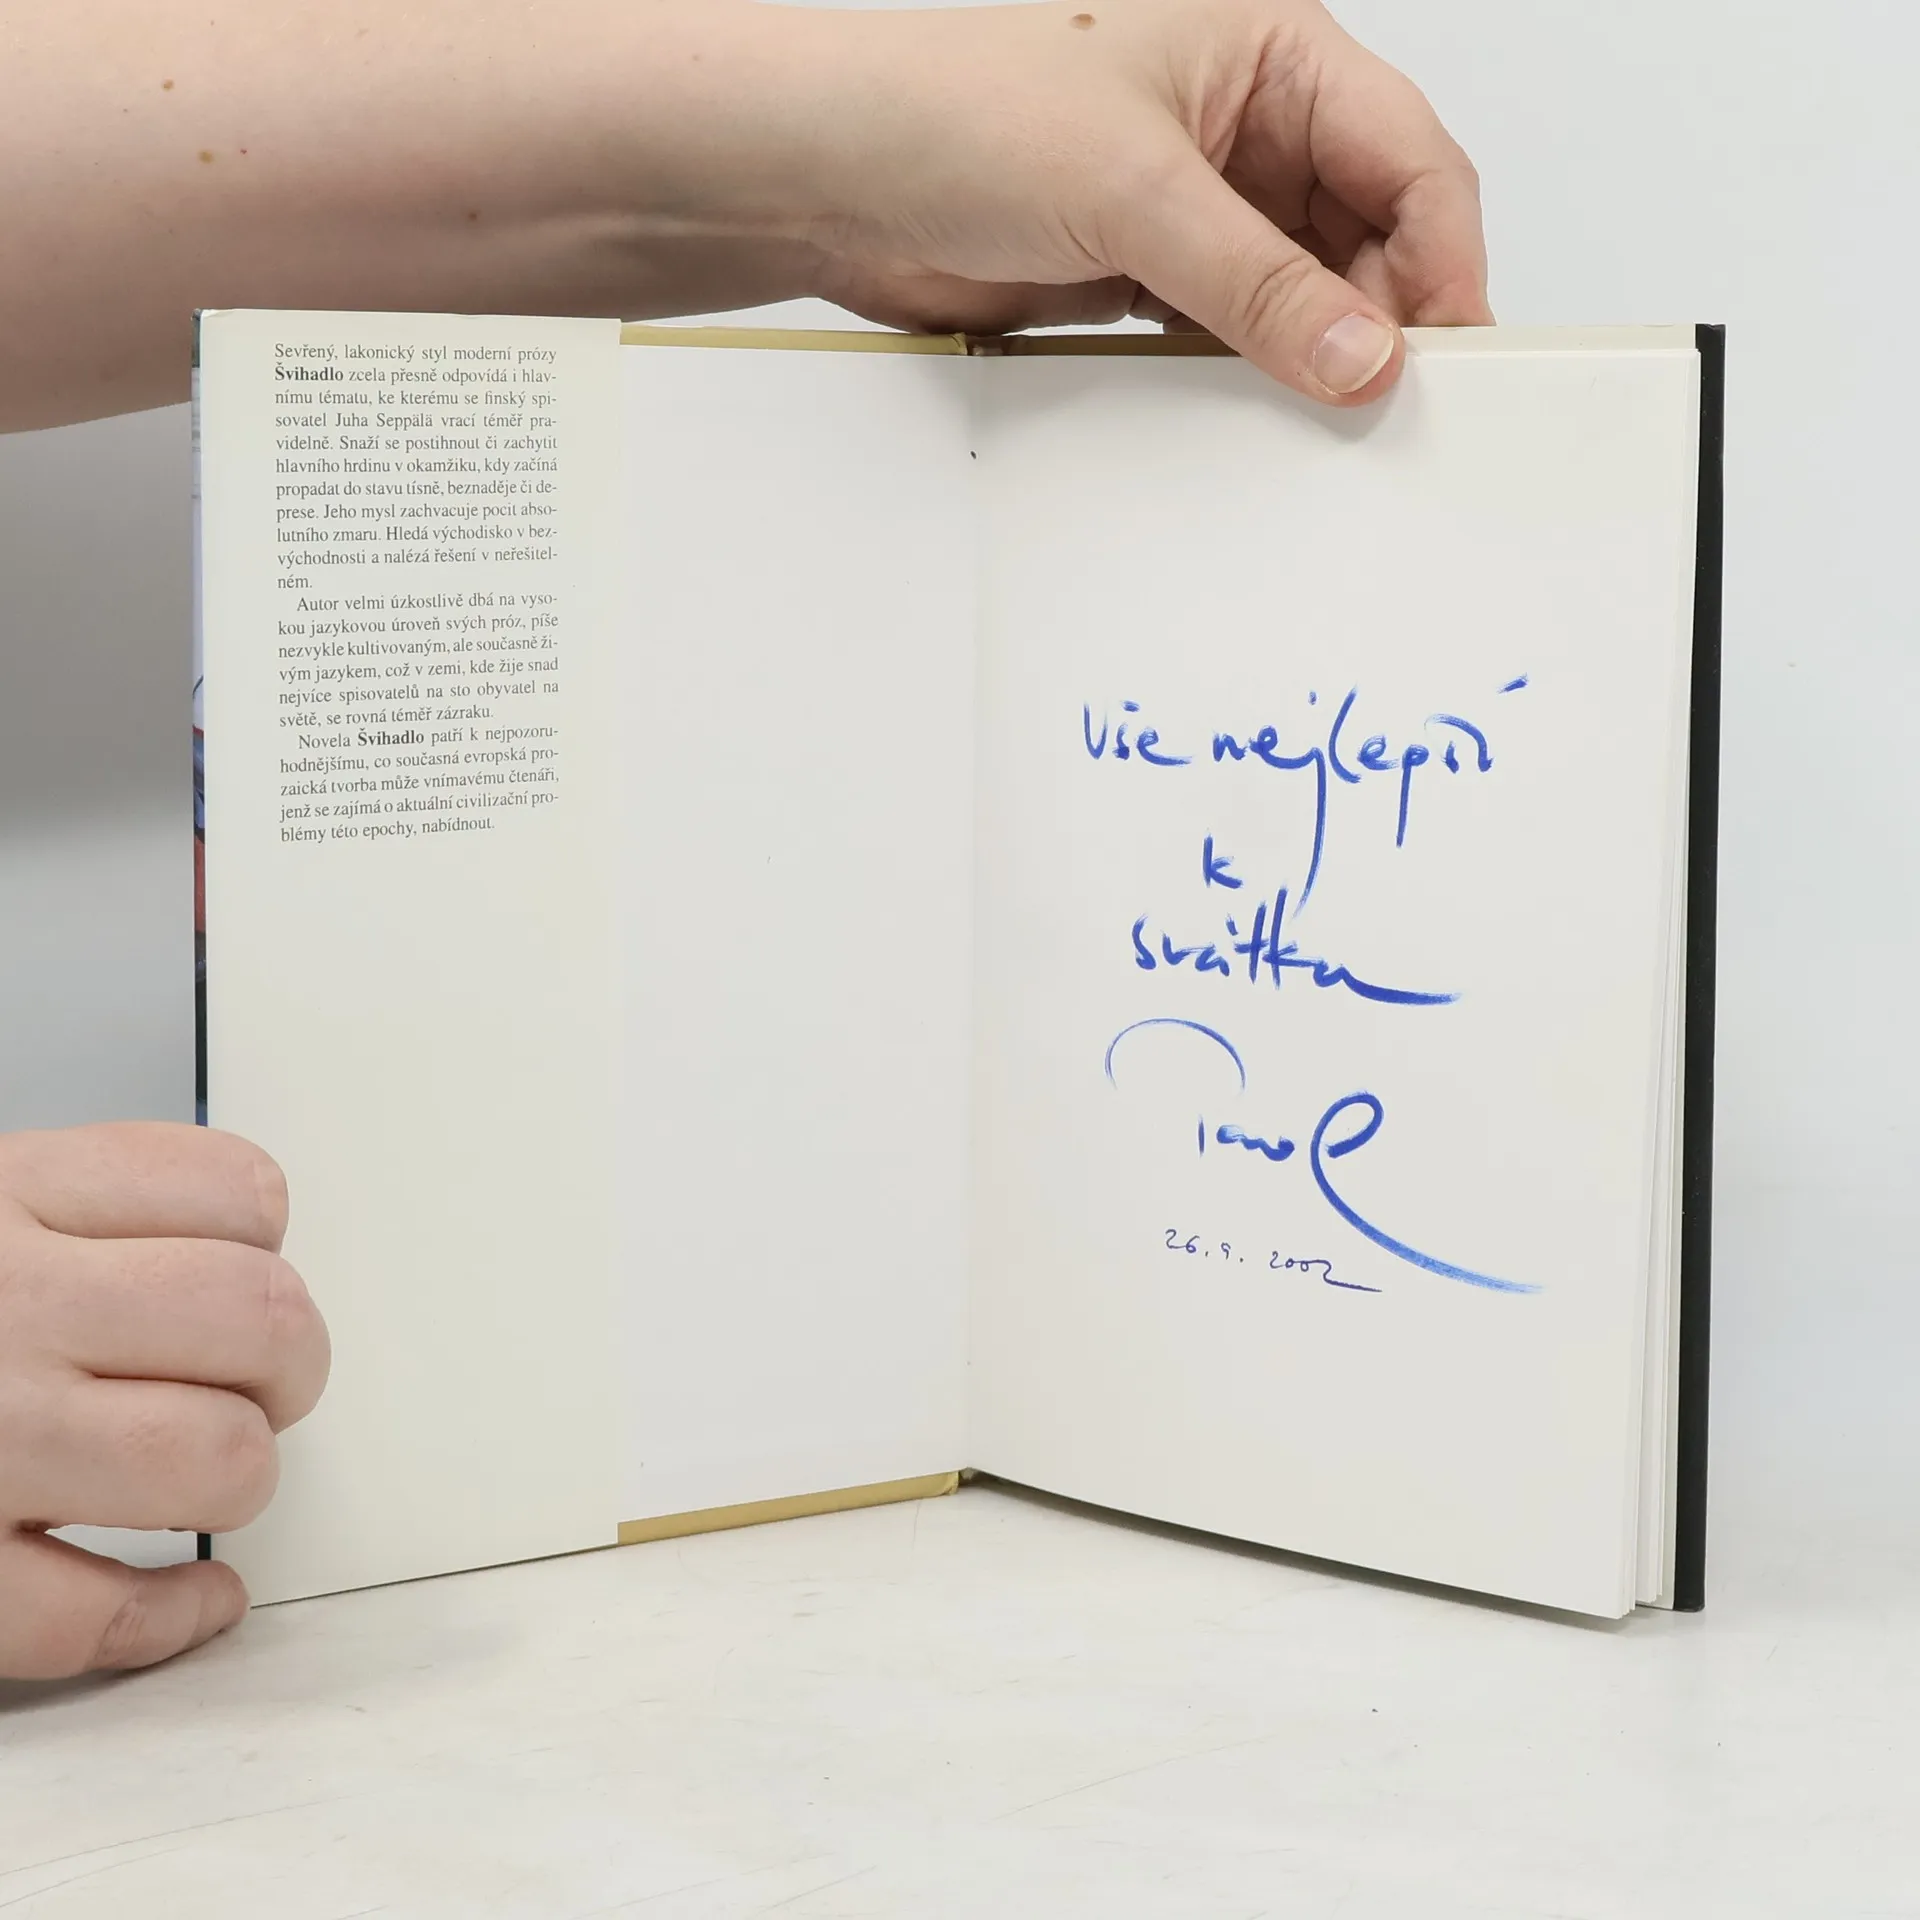 Sevřený, lakonický styl moderní prózy
Švihadlo zcela přesně odpovídá i hlav-
nímu tématu, ke kterému se finský spi-
sovatel Juha Seppälä vrací téměř pra-
videlně. Snaží se postihnout či zachytit
hlavního hrdinu v okamžiku, kdy začíná
propadat do stavu tísně, beznaděje či de-
prese. Jeho mysl zachvacuje pocit abso-
lutního zmaru. Hledá východisko v bez-
východnosti a nalézá řešení v neřešitel-
ném.
Autor velmi úzkostlivě dbá na vyso-
kou jazykovou úroveň svých próz, píše
nezvykle kultivovaným, ale současně ži-
vým jazykem, což v zemi, kde žije snad
nejvíce spisovatelů na sto obyvatel na
světě, se rovná téměř zázraku.
Novela Švihadlo patří k nejpozoru-
hodnějšímu, co současná evropská pro-
zaická tvorba může vnímavému čtenáři,
jenž se zajímá o aktuální civilizační pro-
blémy této epochy, nabídnout.
Vše nejlepší
k
svátku
Pavel
26. 9. 2002